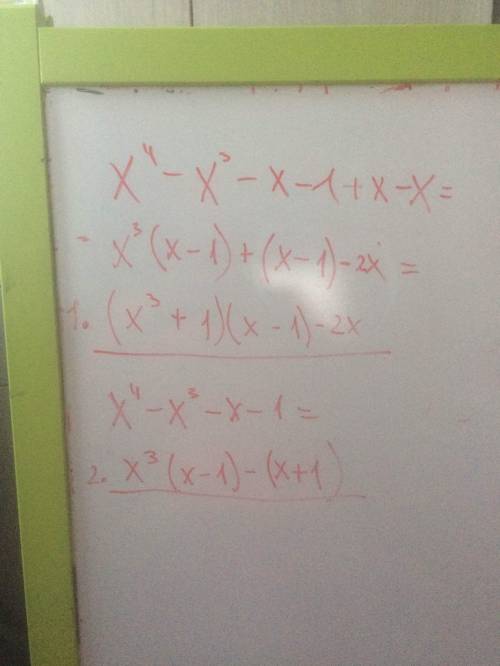 x⁴ - x³ - x - 1 + x - x =
- x³(x - 1) + (x - 1) - 2x =
1. (x³ + 1)(x - 1) - 2x
x⁴ - x³ - x - 1 =
2. x³(x - 1) - (x + 1)